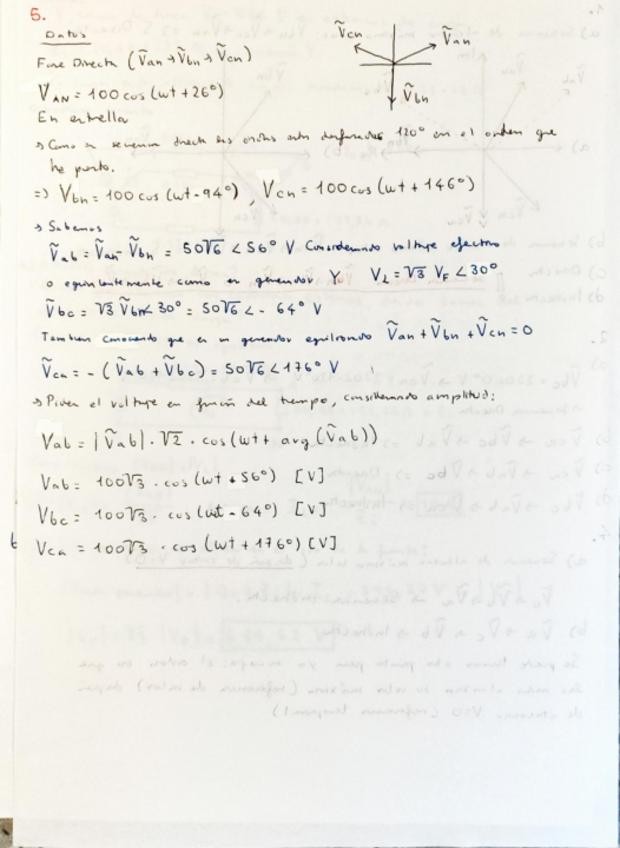 5.
Datos
Fase Directa (Ṽan → Ṽbn → Ṽcn)
Ṽcn
Ṽan
Ṽbn
VAN = 100 cos (wt + 26°)
En estrella
→ Como es secuencia directa las ondas están desfasadas 120° en el orden que
he puesto.
=> Vbn = 100 cos (wt - 94°), Vcn = 100 cos (wt + 146°)
→ Sabemos
Ṽab = Ṽan - Ṽbn = 50√6 < 56° V Considerando voltaje efectivo
o equivalentemente como es generador Y VL = √3 VF < 30°
Ṽbc = √3 Ṽbn < 30° = 50√6 < - 64° V
También conociendo que es un generador equilibrado Ṽan + Ṽbn + Ṽcn = 0
Ṽca = - (Ṽab + Ṽbc) = 50√6 < 176° V
→ Piden el voltaje en función del tiempo, considerando amplitud:
Vab = |Ṽab| · √2 · cos (wt + arg (Ṽab))
Vab = 100√3 · cos (wt + 56°) [V]
Vbc = 100√3 · cos (wt - 64°) [V]
Vca = 100√3 · cos (wt + 176°) [V]